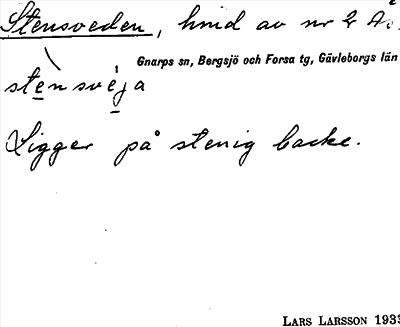 Stensveden, hmd av nr 2 Å.
Gnarps sn, Bergsjö och Forsa tg, Gävleborgs län
stensveja
Ligger på stenig backe.
LARS LARSSON 1933